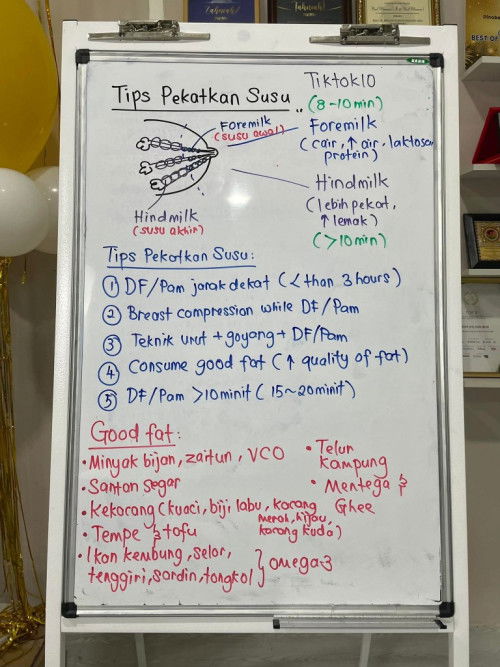 Tahniah!
Tahniah!
BEST OF
Tiktok10
Tips Pekatkan Susu..
(8-10min)
Foremilk
(susu awal)
Foremilk
(cair, ↑ air, laktosa,
protein)
Hindmilk
(lebih pekat,
↑ lemak)
(>10min)
Hindmilk
(susu akhir)
Tips Pekatkan Susu:
① DF/Pam jarak dekat (< than 3 hours)
② Breast compression while DF/Pam
③ Teknik urut + goyang + DF/Pam
④ Consume good fat (↑ quality of fat)
⑤ DF/Pam >10minit (15~20minit)
Good fat:
• Minyak bijan, zaitun, VCO
• Santan segar
• Kekacang (kuaci, biji labu, kacang
merah, hijau,
kacang kuda)
• Tempe & tofu
• Ikan kembung, selar,
tenggiri, sardin, tongkol } omega-3
• Telur
Kampung
• Mentega &
Ghee